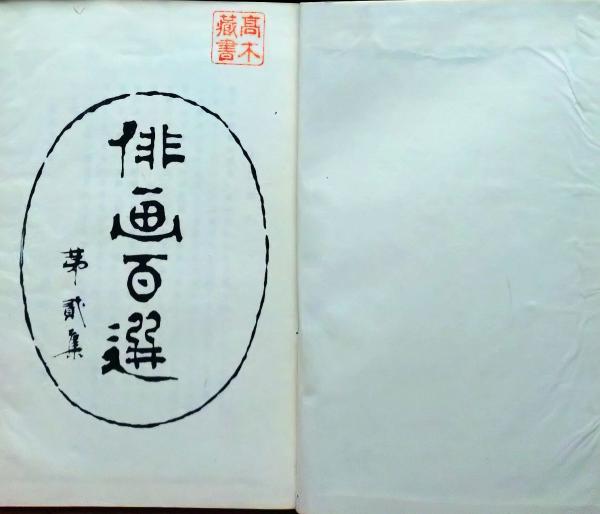 高木
藏書
俳画百選
第貳集